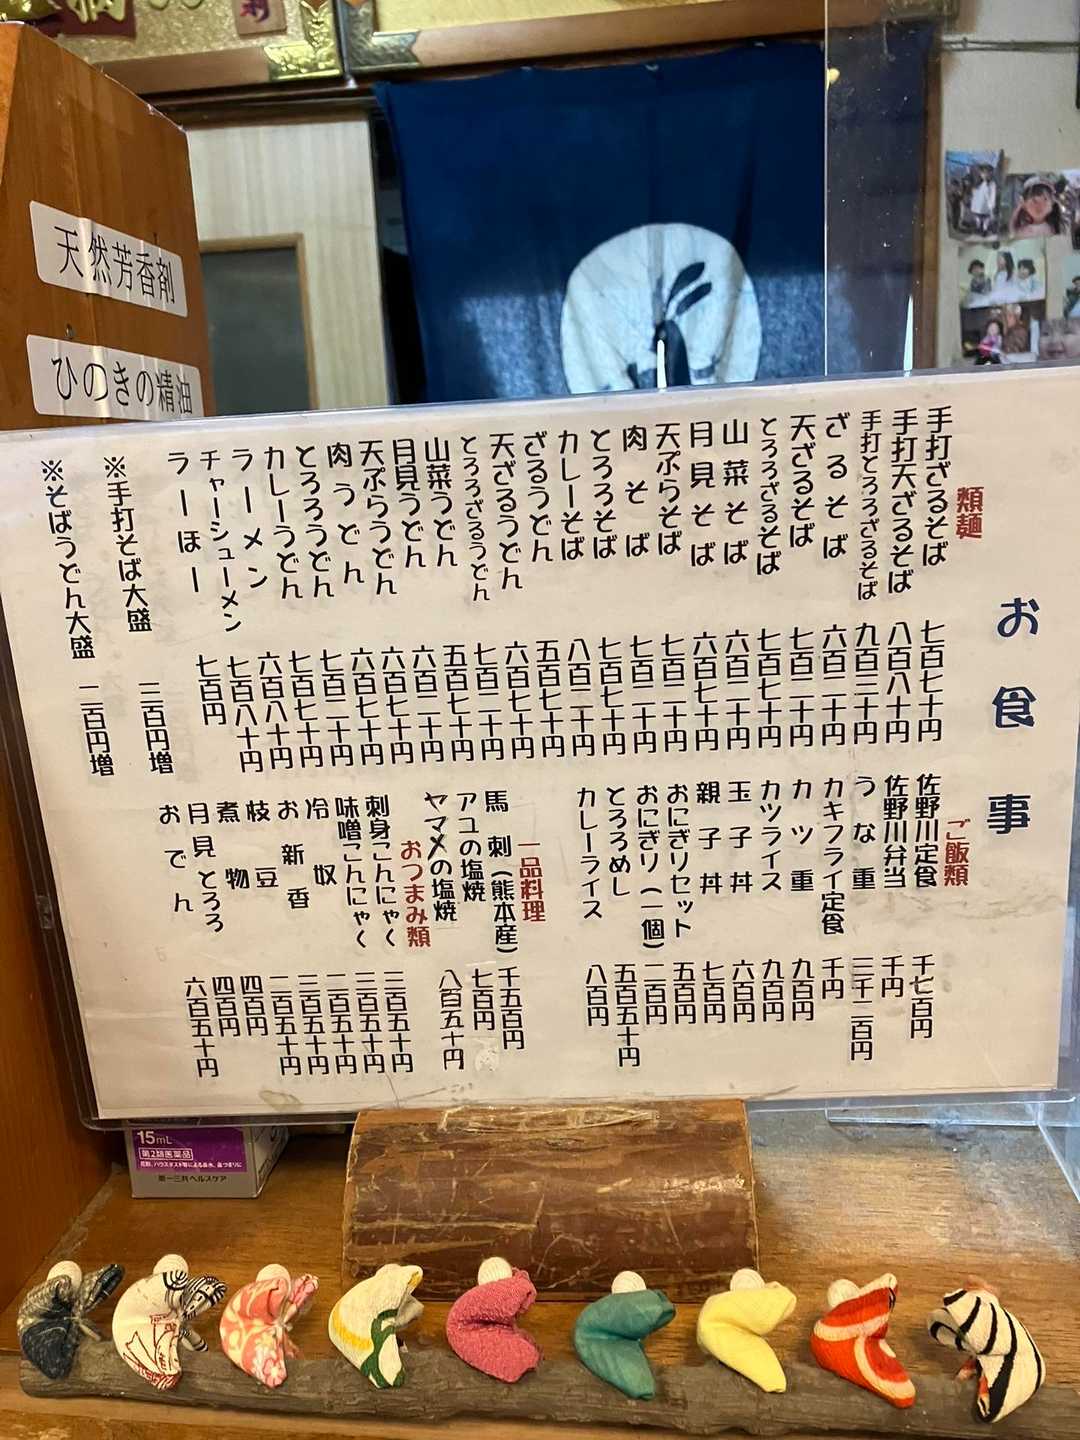 天然芳香剤
ひのきの精油
お食事
類麺
手打ざるそば 七百七十円
手打天ざるそば 八百八十円
手打とろろざるそば 九百三十円
ざるそば 六百二十円
天ざるそば 七百二十円
とろろざるそば 七百七十円
山菜そば 六百二十円
月見そば 六百七十円
天ぷらそば 七百二十円
肉そば 七百二十円
とろろそば 七百七十円
カレーそば 八百二十円
ざるうどん 五百七十円
天ざるうどん 六百七十円
とろろざるうどん 七百二十円
山菜うどん 五百七十円
月見うどん 六百二十円
天ぷらうどん 六百七十円
肉うどん 六百七十円
とろろうどん 七百二十円
カレーうどん 七百七十円
ラーメン 六百八十円
チャーシューメン 七百八十円
ラーほー 七百円
※手打そば大盛 三百円増
※そばうどん大盛 二百円増
ご飯類
佐野川定食 千七百円
佐野川弁当 千円
うな重 三千二百円
カキフライ定食 千円
カツ重 九百円
カツライス 九百円
玉子丼 六百円
親子丼 七百円
おにぎりセット 五百円
おにぎり(一個) 二百円
とろろめし 五百五十円
カレーライス 八百円
一品料理
馬刺(熊本産) 千五百円
アユの塩焼 七百円
ヤマメの塩焼 八百五十円
おつまみ類
刺身こんにゃく 三百五十円
味噌こんにゃく 三百五十円
冷奴 二百五十円
お新香 三百五十円
枝豆 二百五十円
煮物 四百円
月見とろろ 四百円
おでん 六百五十円
15mL
第2類医薬品
第一三共ヘルスケア